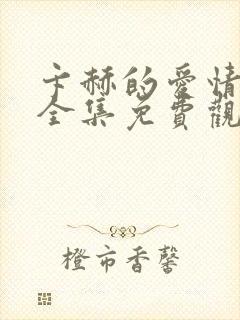 卞赫的愛情
全集免費觀
橙市香馨